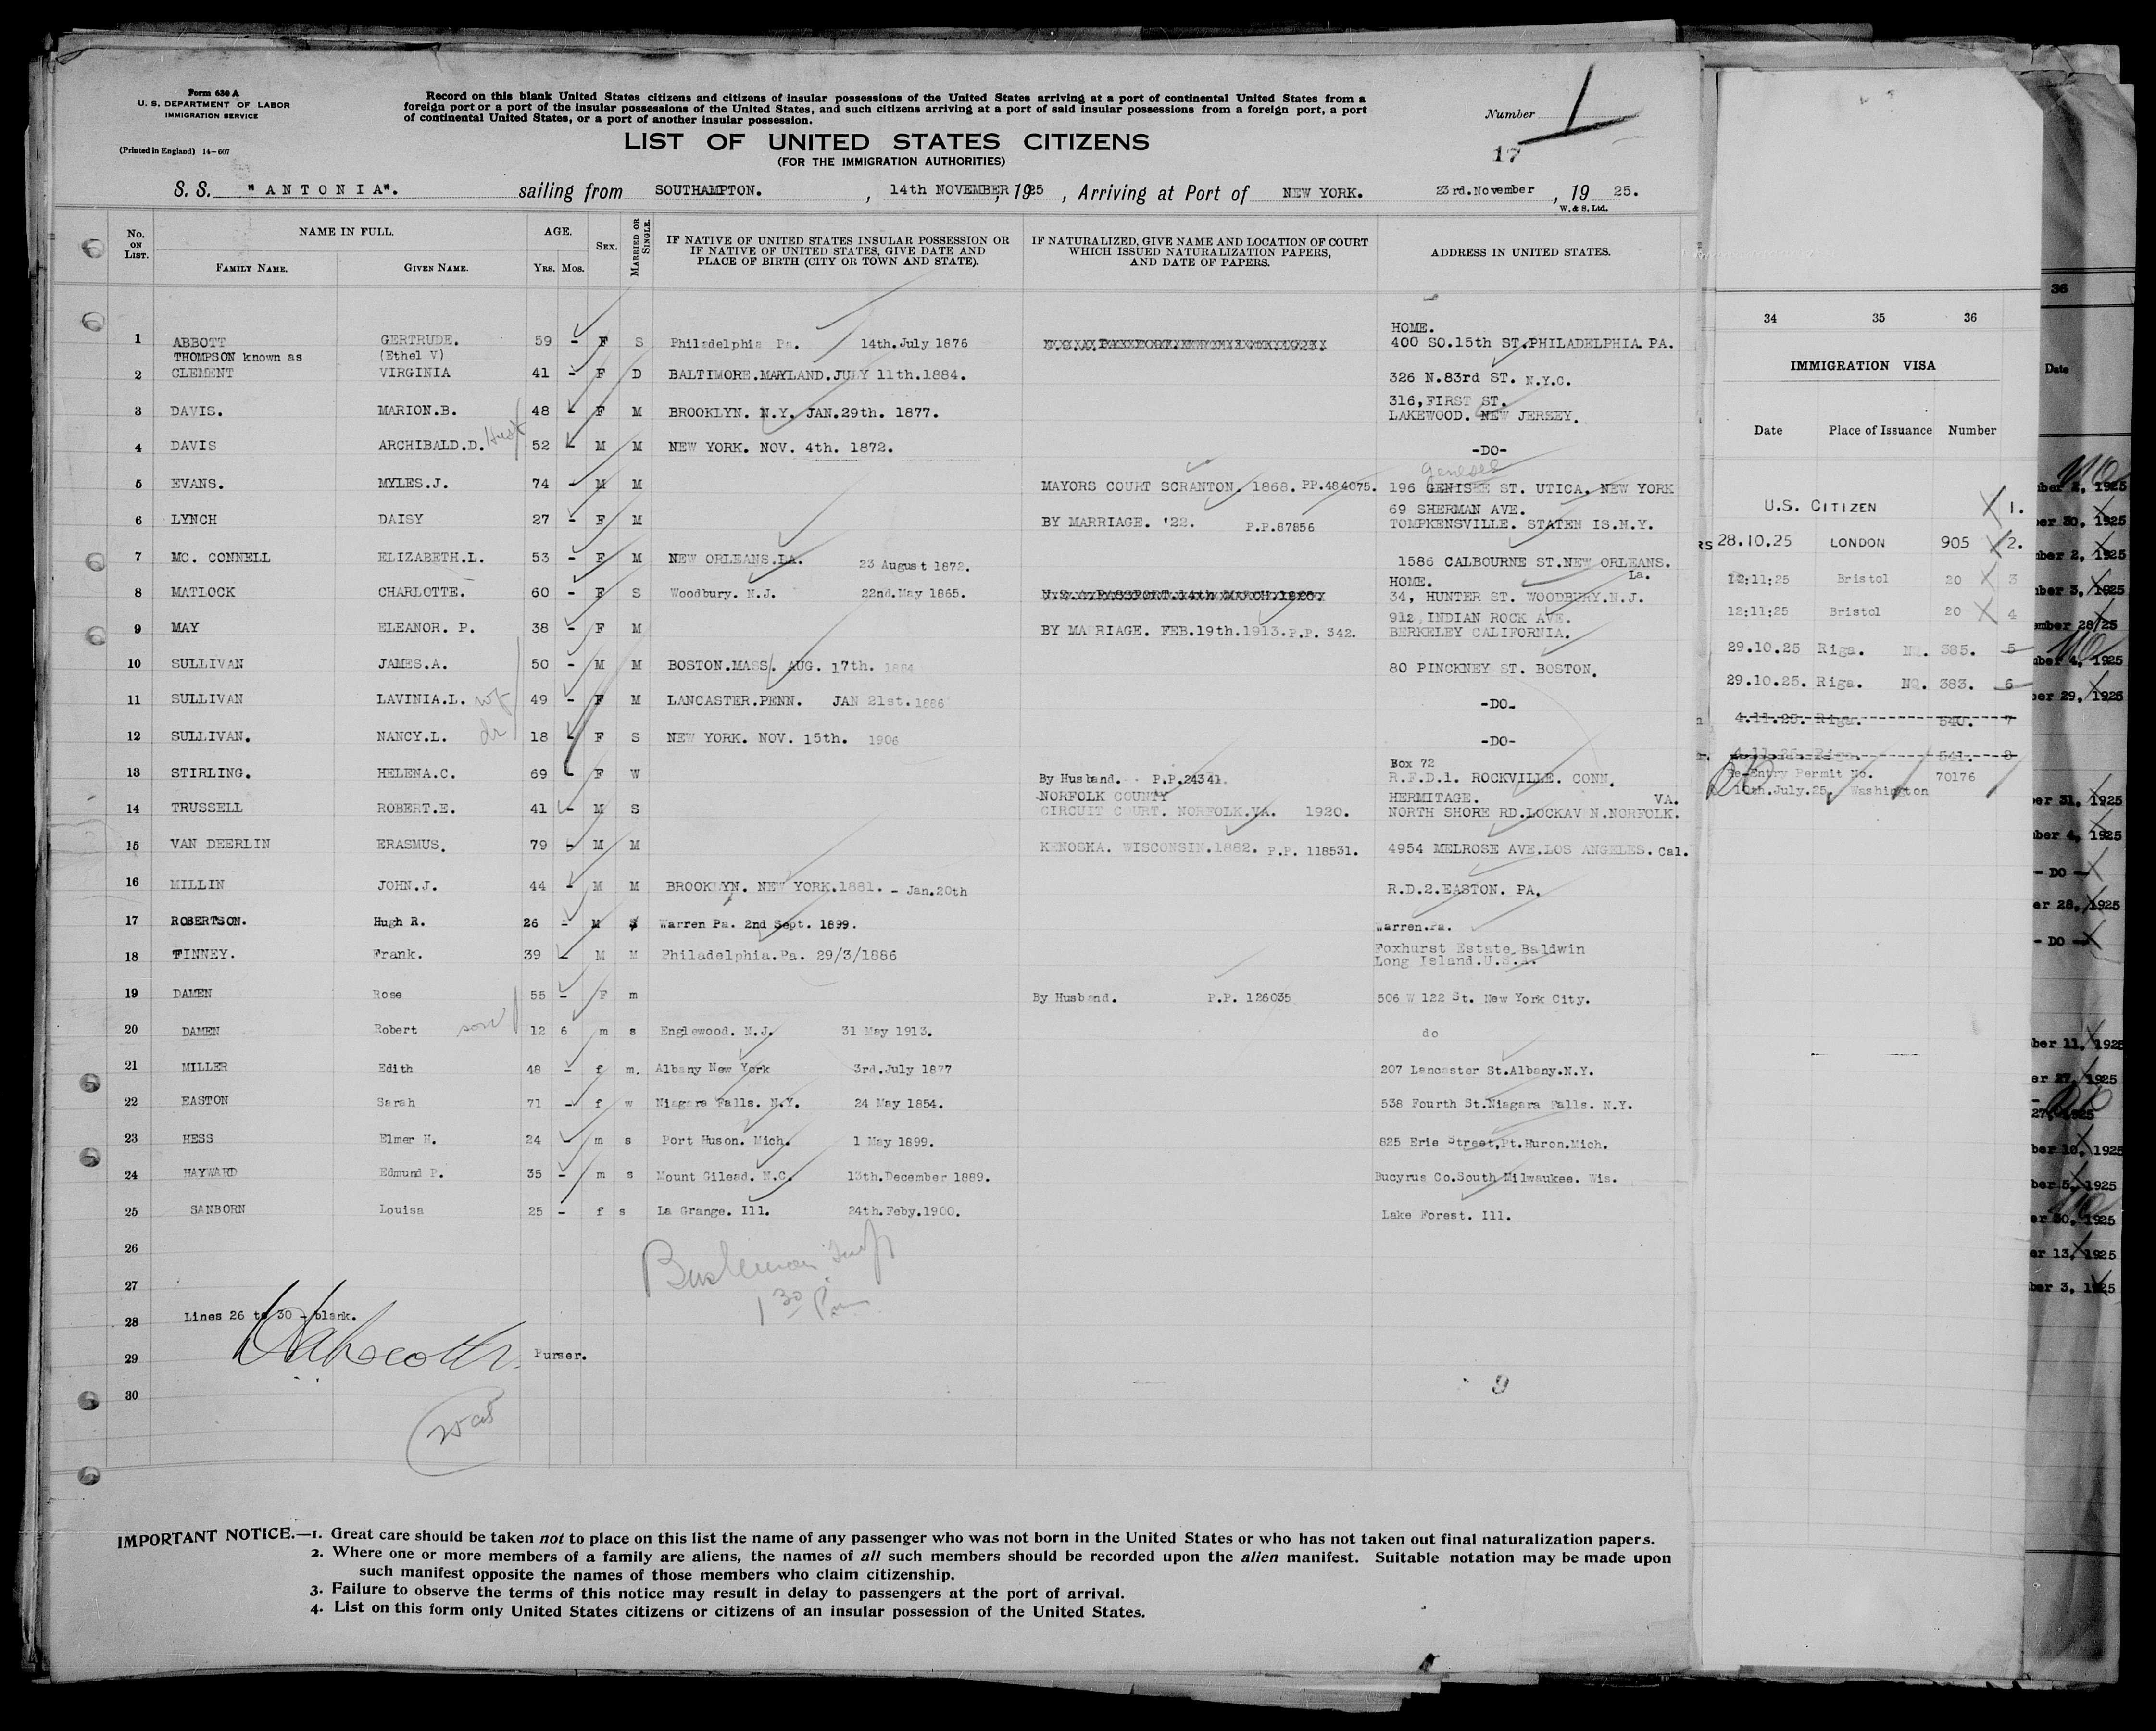 Form 630 A
U. S. DEPARTMENT OF LABOR
IMMIGRATION SERVICE
(Printed in England) 14-607
Record on this blank United States citizens and citizens of insular possessions of the United States arriving at a port of continental United States from a
foreign port or a port of the insular possessions of the United States, and such citizens arriving at a port of said insular possessions from a foreign port, a port
of continental United States, or a port of another insular possession.
Number 1
17
LIST OF UNITED STATES CITIZENS
(FOR THE IMMIGRATION AUTHORITIES)
S. S. "ANTONIA". sailing from SOUTHAMPTON. , 14th NOVEMBER, 1925 , Arriving at Port of NEW YORK. 23rd.November , 19 25.
W. & S. Ltd.
No. ON LIST. NAME IN FULL. AGE. SEX. MARRIED OR SINGLE. IF NATIVE OF UNITED STATES INSULAR POSSESSION OR IF NATIVE OF UNITED STATES, GIVE DATE AND PLACE OF BIRTH (CITY OR TOWN AND STATE). IF NATURALIZED, GIVE NAME AND LOCATION OF COURT WHICH ISSUED NATURALIZATION PAPERS, AND DATE OF PAPERS. ADDRESS IN UNITED STATES.
FAMILY NAME. GIVEN NAME. YRS. MOS.
HOME.
1 ABBOTT GERTRUDE. 59 - F S Philadelphia Pa. 14th.July 1876 400 SO.15th ST.PHILADELPHIA PA.
THOMPSON known as (Ethel V)
2 CLEMENT VIRGINIA 41 - F D BALTIMORE.MARYLAND.JULY 11th.1884. 326 N.83rd ST. N.Y.C.
316,FIRST ST.
3 DAVIS. MARION.B. 48 - F M BROOKLYN. N.Y. JAN.29th. 1877. LAKEWOOD. NEW JERSEY.
4 DAVIS ARCHIBALD.D. Husb 52 - M M NEW YORK. NOV. 4th. 1872. -DO-
Genesee
5 EVANS. MYLES.J. 74 - M M MAYORS COURT SCRANTON. 1868. PP.484075. 196 GENISEE ST. UTICA. NEW YORK
69 SHERMAN AVE.
6 LYNCH DAISY 27 - F M BY MARRIAGE. '22. P.P.87856 TOMPKENSVILLE. STATEN IS.N.Y.
7 MC. CONNELL ELIZABETH.L. 53 - F M NEW ORLEANS.LA. 23 August 1872. 1586 CALBOURNE ST.NEW ORLEANS.
La.
HOME.
8 MATLOCK CHARLOTTE. 60 - F S Woodbury. N.J. 22nd.May 1865. U.S.A.PASSPORT.14th MARCH.1925 34, HUNTER ST. WOODBURY.N.J.
912 INDIAN ROCK AVE.
9 MAY ELEANOR. P. 38 - F M BY MARRIAGE. FEB.19th.1913.P.P. 342. BERKELEY CALIFORNIA.
10 SULLIVAN JAMES.A. 50 - M M BOSTON.MASS. AUG. 17th. 80 PINCKNEY ST. BOSTON.
11 SULLIVAN LAVINIA.L. wf 49 - F M LANCASTER.PENN. JAN 21st.1886 -DO-
12 SULLIVAN. NANCY.L. dr 18 - F S NEW YORK. NOV. 15th. 1906 -DO-
Box 72
13 STIRLING. HELENA.C. 69 F W By Husband. P.P.24341. R.F.D.1. ROCKVILLE. CONN.
NORFOLK COUNTY HERMITAGE. VA.
14 TRUSSELL ROBERT.E. 41 - M S CIRCUIT COURT. NORFOLK.VA. 1920. NORTH SHORE RD.LOCKAV N.NORFOLK.
15 VAN DEERLIN ERASMUS. 79 - M M KENOSHA. WISCONSIN.1882. P.P. 118531. 4954 MELROSE AVE.LOS ANGELES. Cal.
16 MILLIN JOHN.J. 44 - M M BROOKLYN. NEW YORK.1881. - Jan.20th R.D.2.EASTON. PA.
17 ROBERTSON. Hugh R. 26 - M S Warren Pa. 2nd Sept. 1899. Warren.Pa.
Foxhurst Estate Baldwin
18 FINNEY. Frank. 39 - M M Philadelphia.Pa. 29/3/1886 Long Island.U.S.A.
19 DAMEN Rose 55 - F m By Husband. P.P. 126035 506 W 122 St. New York City.
20 DAMEN Robert son 12 6 m s Englewood. N.J. 31 May 1913. do
21 MILLER Edith 48 - f m. Albany New York 3rd.July 1877 207 Lancaster St.Albany.N.Y.
22 EASTON Sarah 71 - f w Niagara Falls. N.Y. 24 May 1854. 538 Fourth St.Niagara Falls. N.Y.
23 HESS Elmer H. 24 - m s Port Huson. Mich. 1 May 1899. 825 Erie Street,Pt.Huron.Mich.
24 HAYWARD Edmund P. 35 - m s Mount Gilead. N.C. 13th.December 1889. Bucyrus Co.South Milwaukee. Wis.
25 SANBORN Louisa 25 - f s La Grange. Ill. 24th.Feby.1900. Lake Forest. Ill.
26
27
Lines 26 to 30 - blank.
28
29 Purser.
30
1 30 Pm
9
IMPORTANT NOTICE.—1. Great care should be taken not to place on this list the name of any passenger who was not born in the United States or who has not taken out final naturalization papers.
2. Where one or more members of a family are aliens, the names of all such members should be recorded upon the alien manifest. Suitable notation may be made upon
such manifest opposite the names of those members who claim citizenship.
3. Failure to observe the terms of this notice may result in delay to passengers at the port of arrival.
4. List on this form only United States citizens or citizens of an insular possession of the United States.
34 35 36
IMMIGRATION VISA
Date Place of Issuance Number
U.S. CITIZEN 1.
28.10.25 LONDON 905 2.
12:11:25 Bristol 20 3
12:11:25 Bristol 20 4
29.10.25 Riga. NO. 385. 5
29.10.25. Riga. NO. 383. 6
4.11.25. Riga. 540. 7
4.11.25. Riga. 541. 8
Re-Entry Permit No. 70176
10th.July.25. Washington
36
Date
ber 2, 1925
ber 30, 1925
ber 2, 1925
ber 3, 1925
ember 28/25
ber 4, 1925
ber 29, 1925
ber 31, 1925
ber 4, 1925
- DO -
er 28, 1925
- DO -
ber 11, 1925
er 27, 1925
27, 1925
ber 10, 1925
ber 5, 1925
er 30, 1925
er 13, 1925
ber 3, 1925